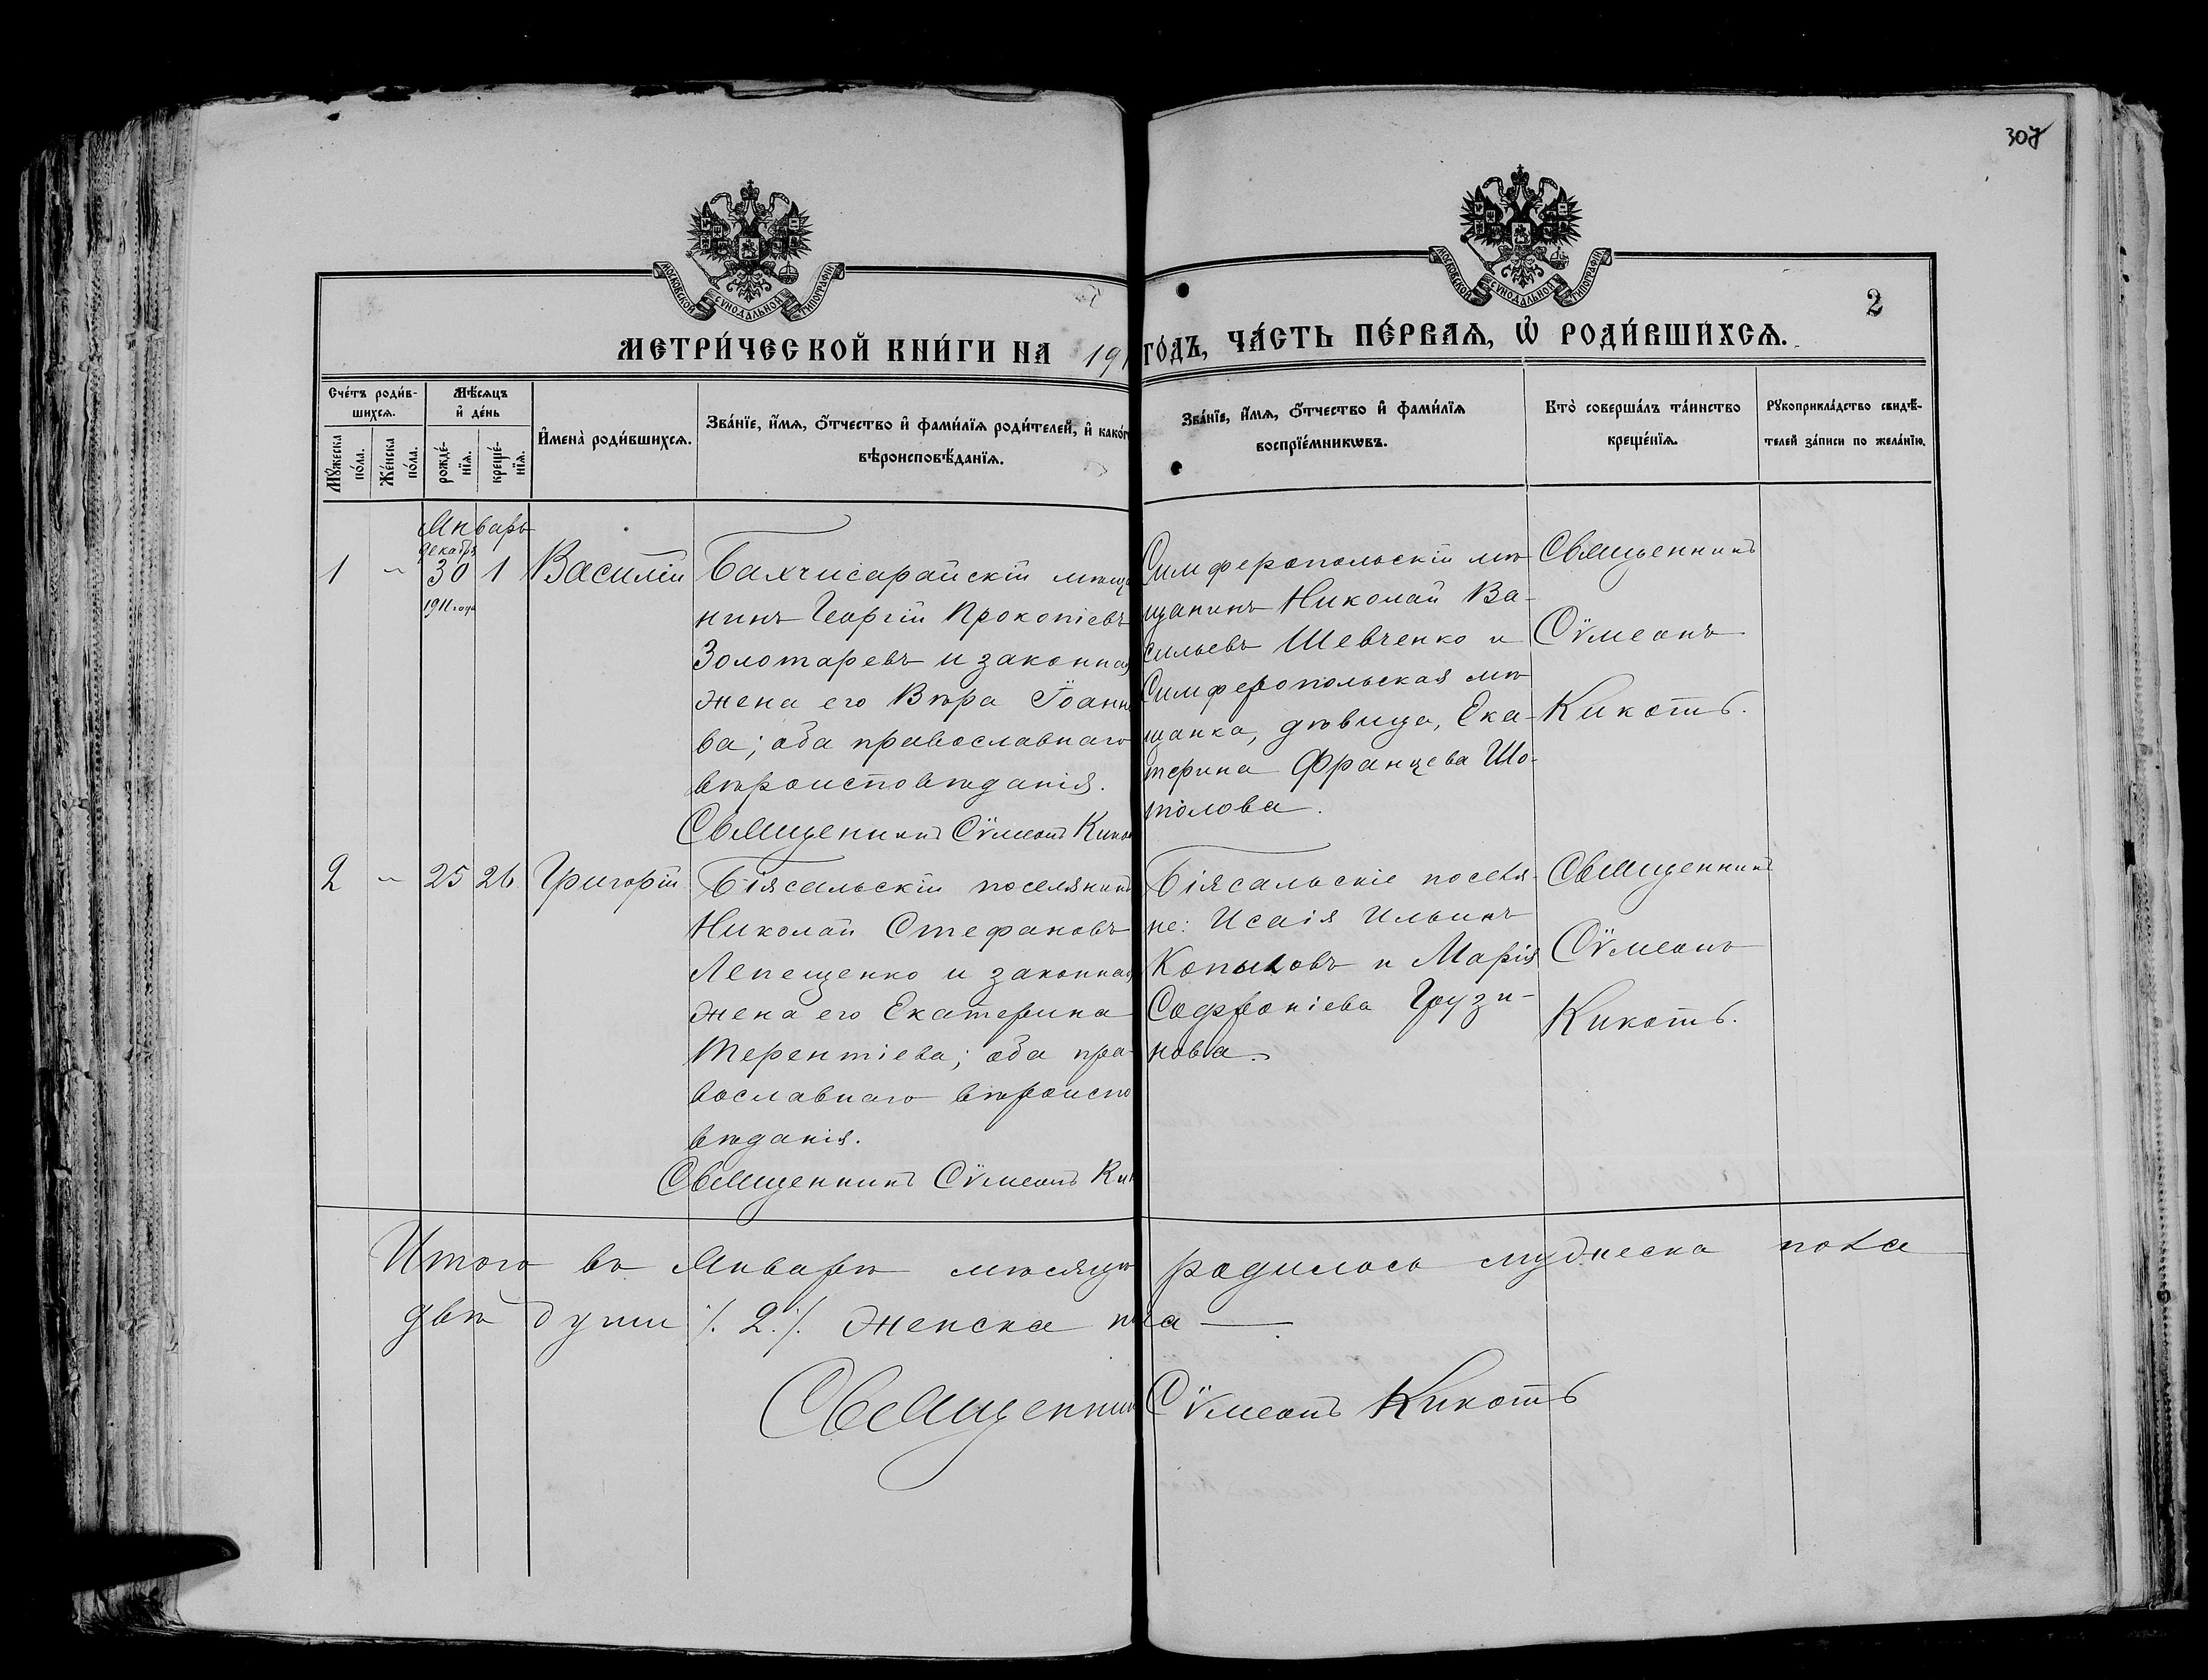 308
МОСКОВСКОЙ СѴНОДАЛЬНОЙ ТИПОГРАФІИ
МОСКОВСКОЙ СѴНОДАЛЬНОЙ ТИПОГРАФІИ
2
МЕТРИ́ЧЕСКОЙ КНИ́ГИ НА 191 ГО́ДЪ, ЧА́СТЬ ПЕ́РВАѦ, Ѡ҆ РОДИ́ВШИХСѦ.
Сче́тъ роди́в-
шихсѧ.
Мꙋ́жеска
по́ла.
Же́нска
по́ла.
Мѣ́сѧцъ
и҆ де́нь
рожде́-
нїѧ.
креще́-
нїѧ.
И҆мена̀ роди́вшихсѧ.
Зва́нїе, и҆́мѧ, ѻ҆́тчество и҆ фами́лїѧ роди́телей, и҆ како́г
вѣроисповѣ́данїѧ.
Зва́нїе, и҆́мѧ, ѻ҆́тчество и҆ фами́лїѧ
воспрїе́мникѡвъ.
Кто̀ соверша́лъ та́инство
креще́нїѧ.
Рꙋкоприкла́дство свидѣ́-
телей за́писи по жела́нїю.
Январь
декабря
1 " 30 1 Василій
1911 года
Бахчисарайскій мѣща
нинъ Георгій Прокопіевъ
Золотаревъ и законная
жена его Вѣра Іоанно
ва; оба православнаго
вѣроисповѣданія.
Священникъ Сѵмеонъ Кико
Симферопольскій мѣ-
щанинъ Николай Ва-
сильевъ Шевченко и
Симферопольская мѣ-
щанка, дѣвица, Ека-
терина Францева Шо-
толова.
Священникъ
Сѵмеонъ
Кикоть.
2 " 25 26 Григорій
Біясальскій поселянинъ
Николай Стефановъ
Лепещенко и законная
жена его Екатерина
Терентіева; оба пра-
вославнаго вѣроиспо
вѣданія.
Священникъ Сѵмеонъ Кик
Біясальскіе поселя-
не: Исаія Ильинъ
Копыловъ и Марія
Софроніева Грузи-
нова.
Священникъ
Сѵмеонъ
Кикоть.
Итого въ Январѣ мѣсяцѣ родилось мужеска пола
двѣ души /. 2 ./. женска пола —
Священник Сѵмеонъ Кикоть